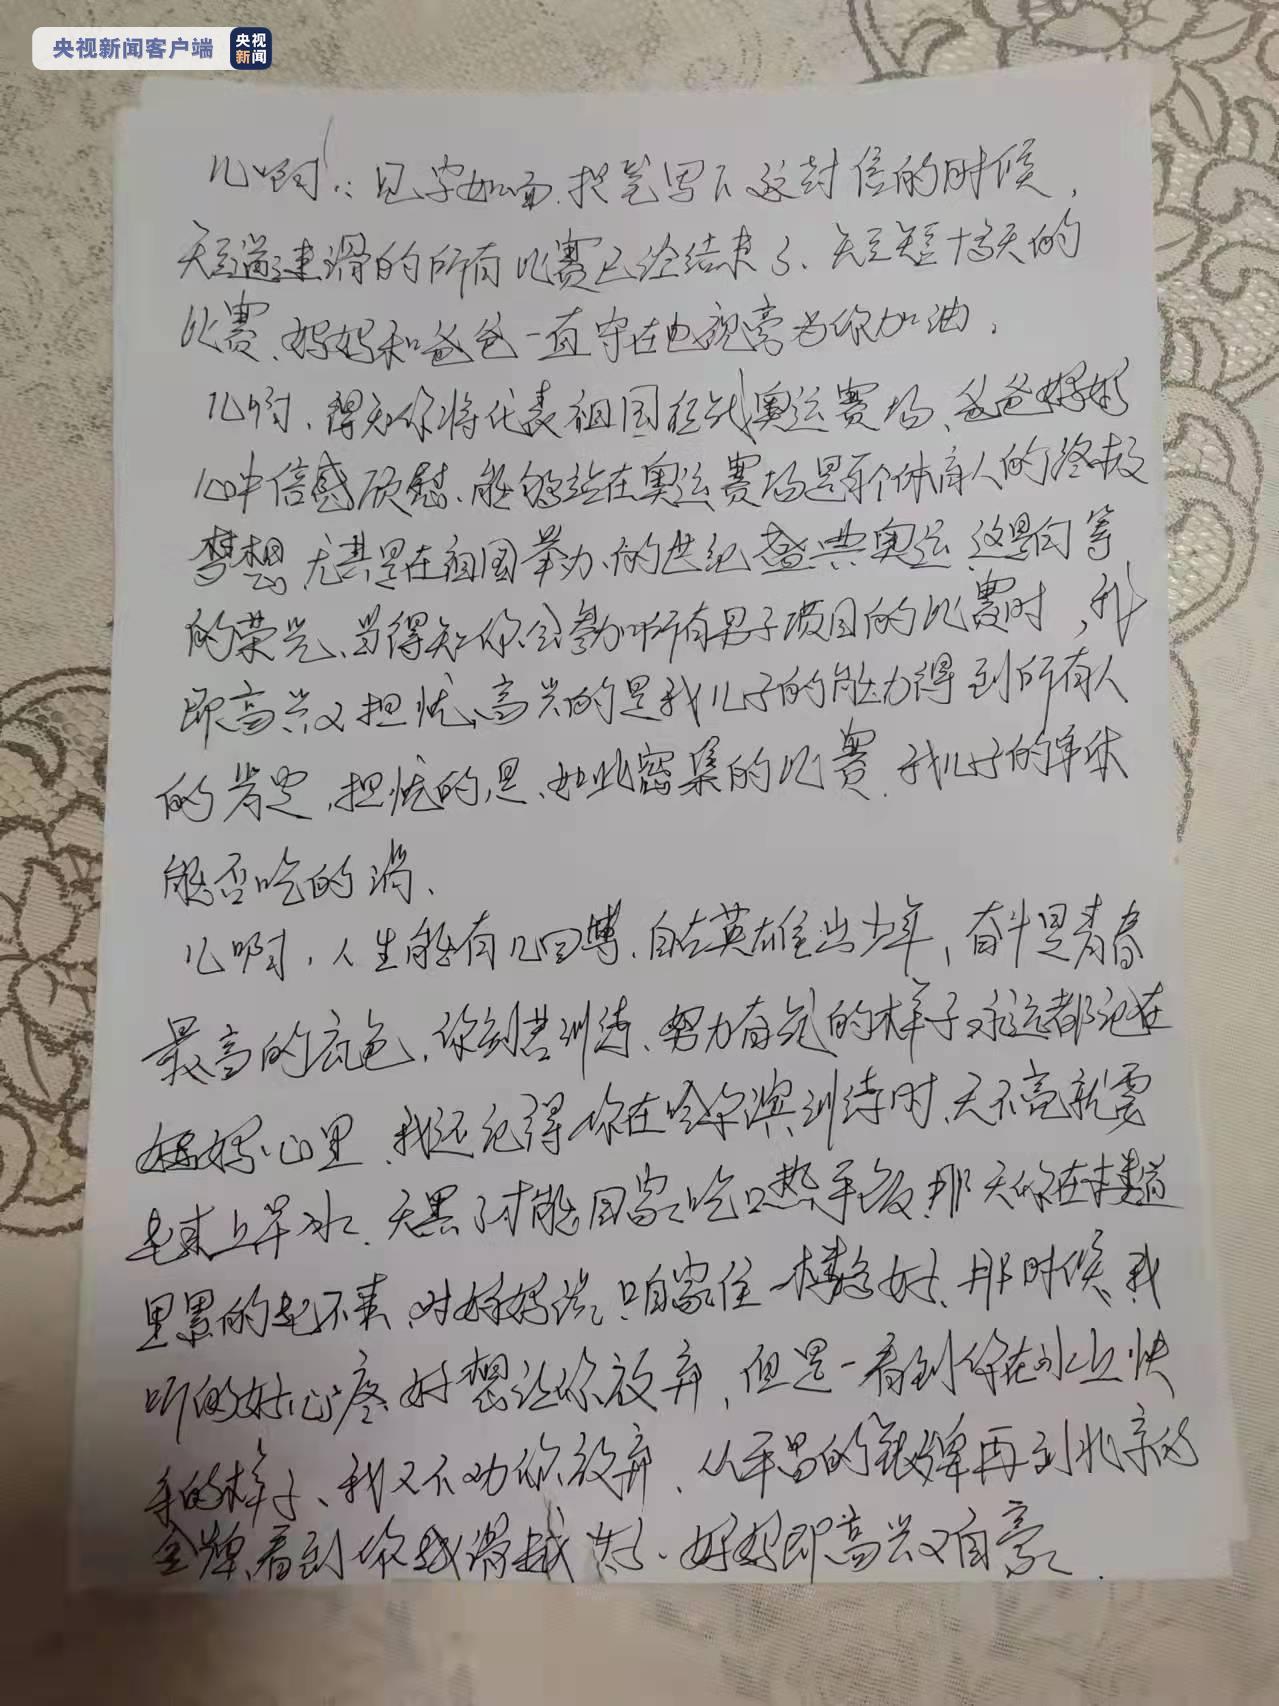 央视新闻客户端
央视
新闻
儿啊！：见字如面、提笔写下这封信的时候，
短道速滑的所有比赛已经结束了、短短十多天的
比赛、妈妈和爸爸一直守在电视旁为你加油。
儿啊、得知你将代表祖国征战奥运赛场、爸爸妈妈
心中倍感欣慰、能够站在奥运赛场是每个体育人的终极
梦想 尤其是在祖国举办的世纪盛典奥运 这是何等
的荣光、当得知你会参加所有男子项目的比赛时，我
即高兴又担忧、高兴的是我儿子的能力得到所有人
的肯定，担忧的是、如此密集的比赛、我儿子的身体
能否吃的消、
儿啊，人生能有几回搏、自古英雄出少年，奋斗是青春
最高的底色、你刻苦训练、努力奋起的样子永远都记在
妈妈心里、我还记得你在哈尔滨训练时、天不亮就要
起来上早冰、天黑了才能回家吃口热乎饭、那天你在楼道
里累的起不来、对妈妈说：咱家住一楼多好、那时候、我
听的好心疼 好想让你放弃，但是一看到你在冰上快
乐的样子、我又不劝你放弃、从平昌的银牌再到北京的
金牌、看到你越滑越好、妈妈即高兴又自豪、